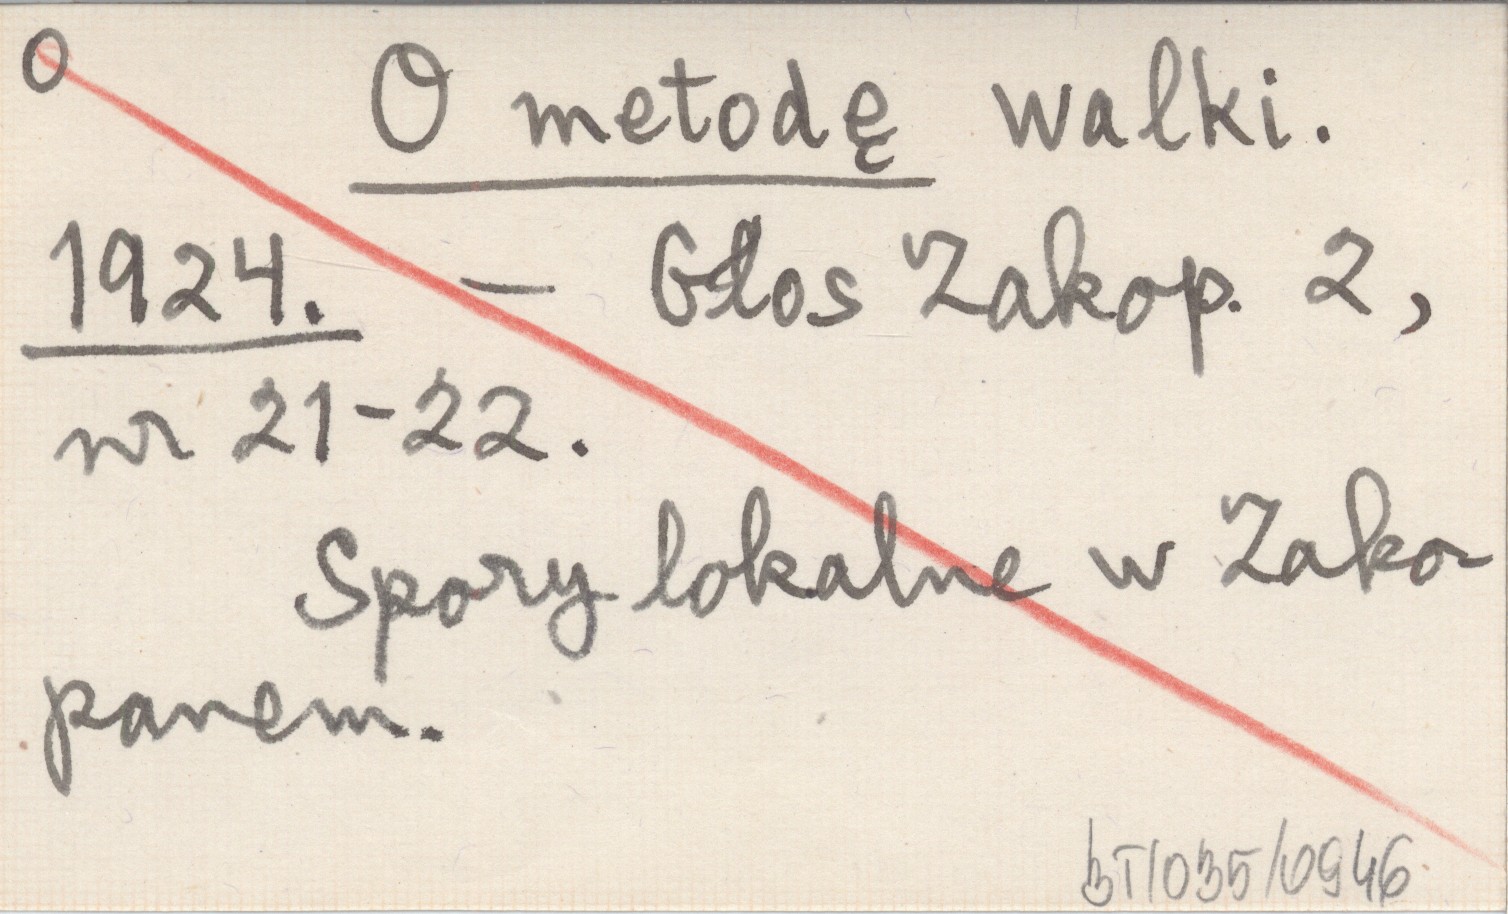 O
O metodę walki.
1924. — Głos Zakop. 2,
nr 21-22.
Spory lokalne w Zako
panem.
BT/035/0946